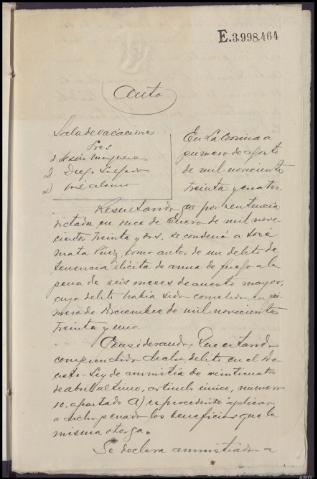 E.3.998.464
Auto
Sala de vacaciones
Sres
D. Diego
D. José
En La Coruña a
primero de agosto
de mil novecientos
treinta y cuatro.
Resultando que por sentencia
dictada en once de Enero de mil nove-
cientos treinta y dos, se condenó a José
Mata como autor de un delito de
tenencia ilícita de arma de fuego a la
pena de seis meses de arresto mayor,
cuyo delito había sido cometido en pri-
mero de Diciembre de mil novecientos
treinta y uno.
Considerando: Que estando
comprendido dicho delito en el De-
creto-Ley de amnistía de veinticuatro
de abril último, artículo único, número
10, apartado A) es procedente aplicar
a dicho penado los beneficios que la
misma otorga.
Se declara amnistiado a